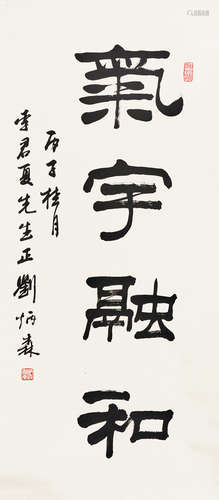 氣宇融和
丙子桂月
李君夏先生正劉炳森